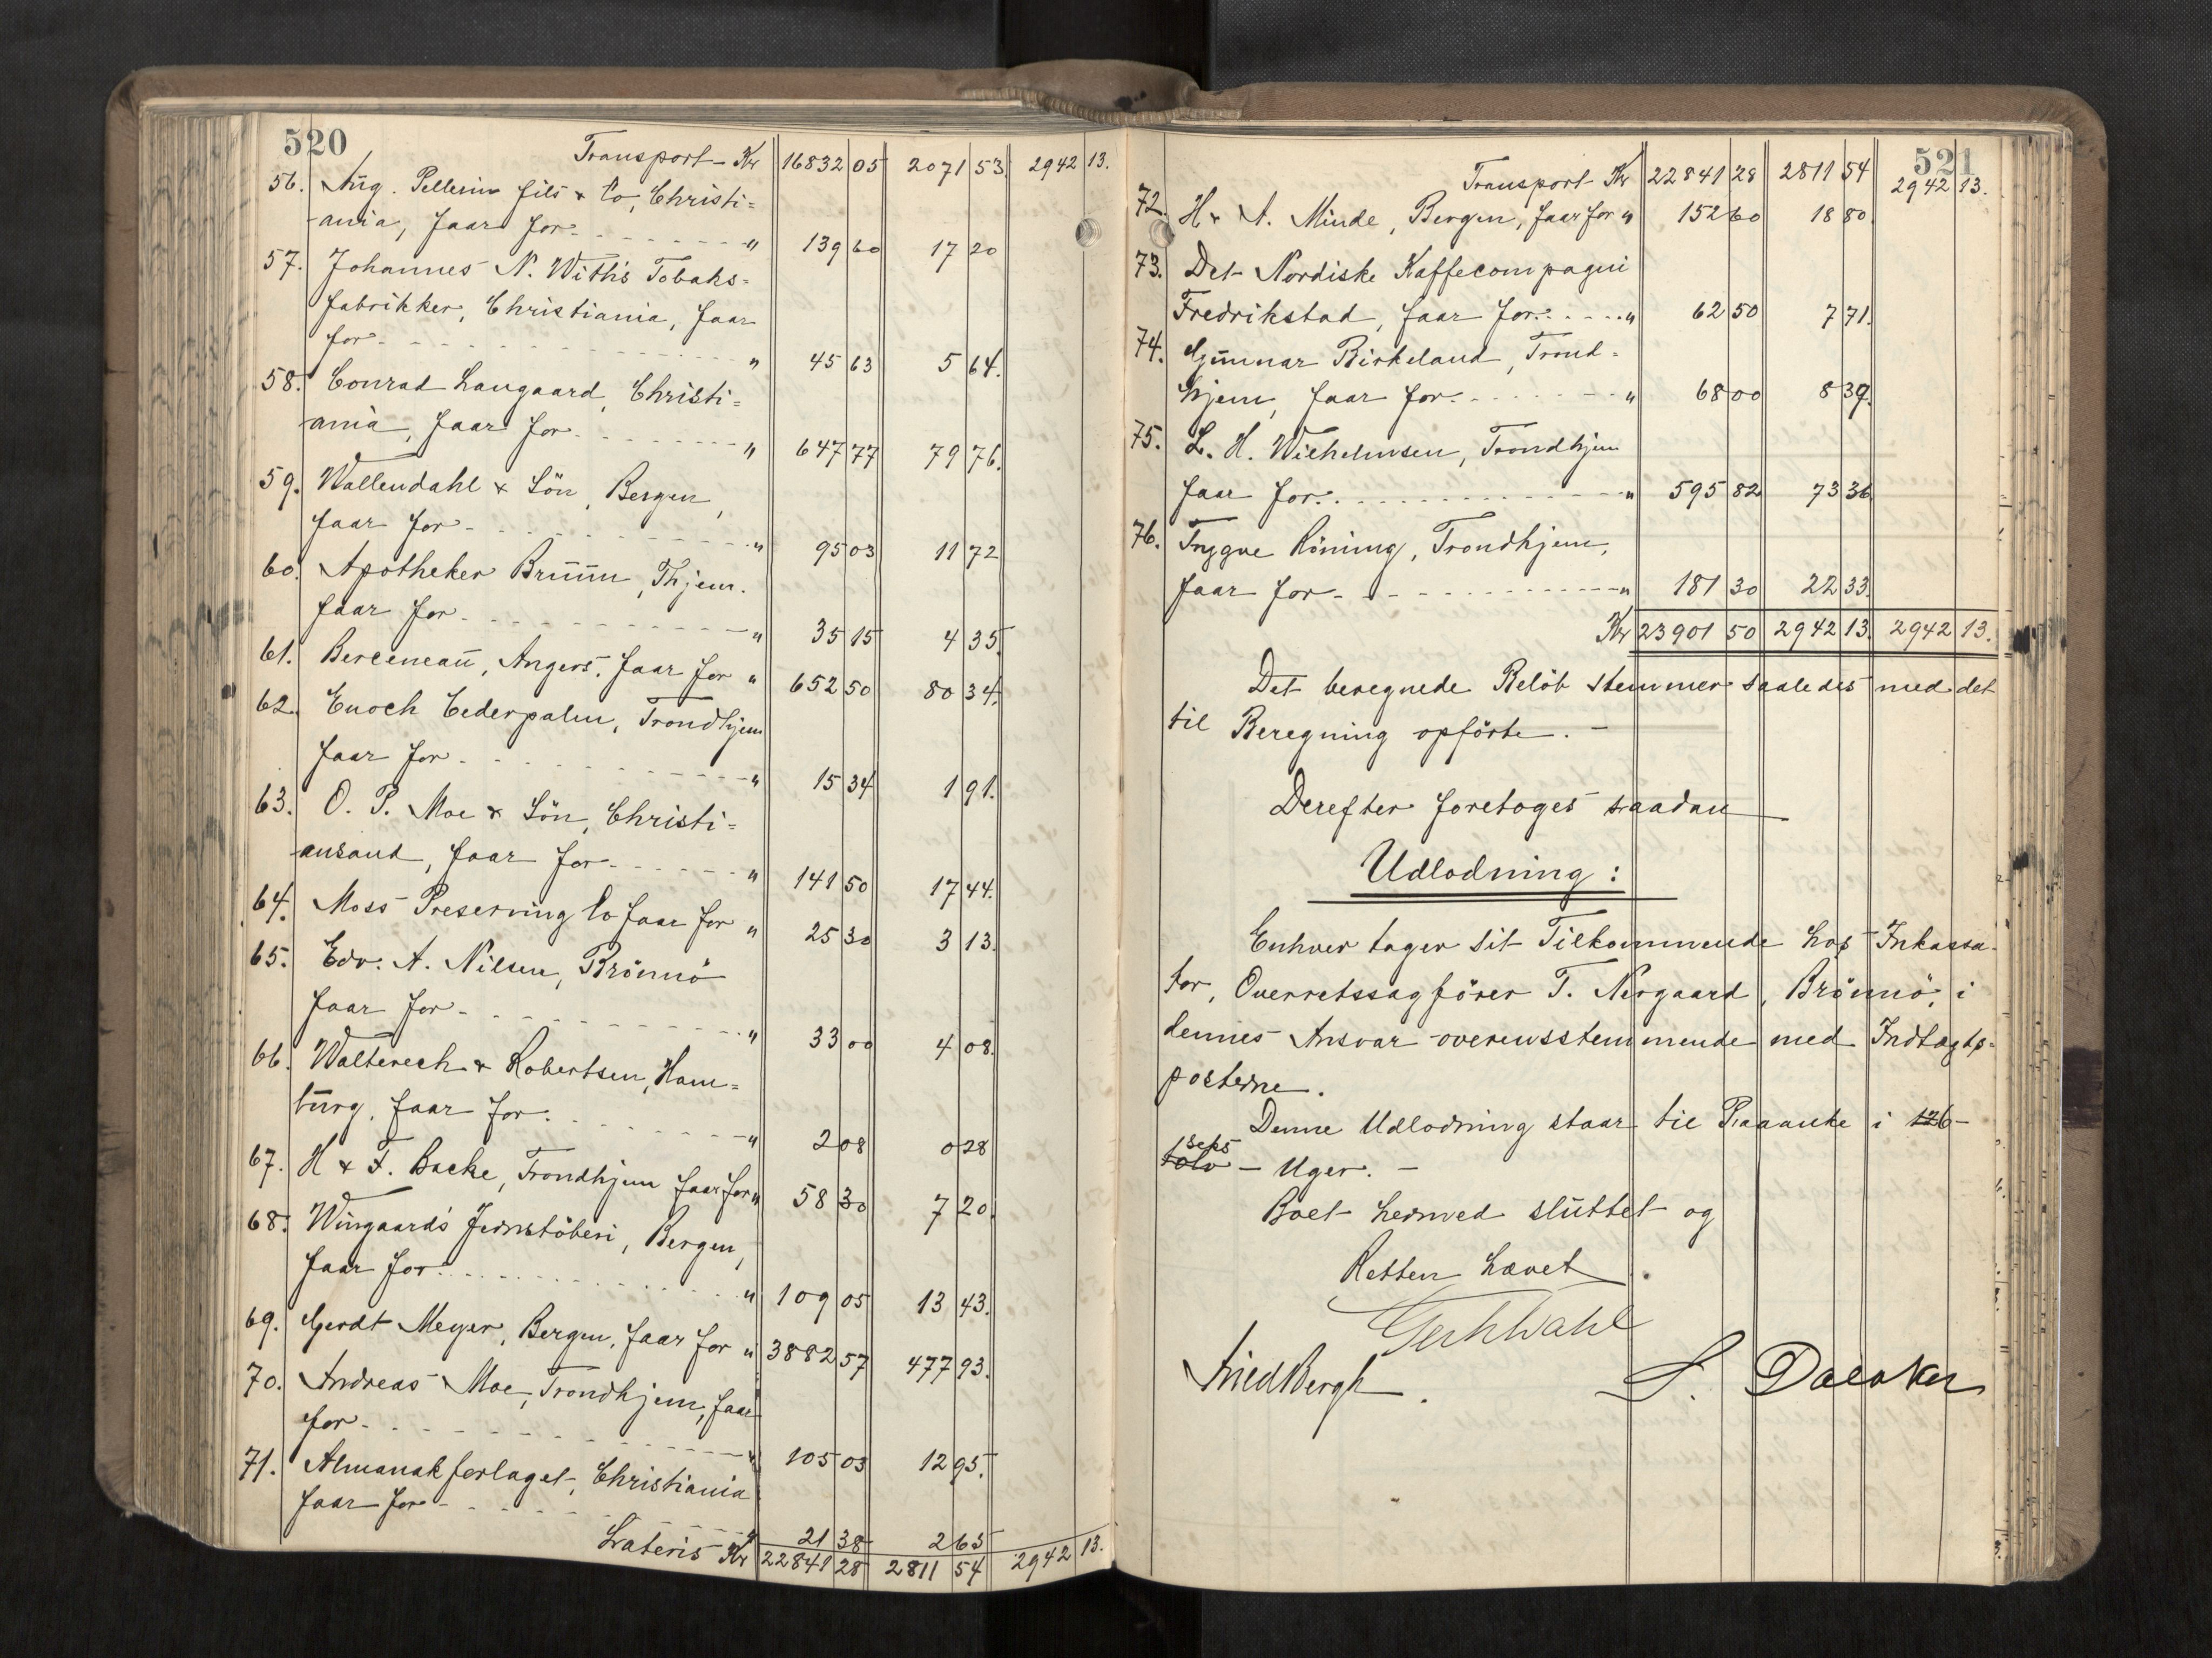 520
Transport Kr 16832 05 2071 53. 2942 13.
56. Aug. Pellerin fils & Co, Christi=
ania, faar for - - - " 139 60 17 20
57. Johannes N. With's Tobaks=
fabrikker, Christiania, faar
for - - - " 45 63 5 64.
58. Conrad Langaard, Christi=
ania, faar for - - - " 647 77 79 76.
59. Wallendahl & Sön, Bergen,
faar for - - - " 95 03 11 72
60. Apotheker Bruun, Thjem.
faar for - - - " 35 15 4 35.
61. Berceneau, Angers, faar for " 652 50 80 34.
62. Enoch Cederpalm, Trondhjem
faar for - - - " 15 34 1 91.
63. O. P. Moe & Sön, Christi=
ansand, faar for - - - " 141 50 17 44.
64. Moss Preserving Co faar for " 25 30 3 13.
65. Edv. A. Nilsen, Brönnö
faar for - - - " 33 00 4 08.
66. Walterech & Robertsen, Ham=
burg, faar for - - - " 2 08 0 28
67. H & F. Backe, Trondhjem faar for " 58 30 7 20.
68. Wingaards Jernstöberi, Bergen,
faar for - - - " 109 05 13 43.
69. Gerdt Meyer, Bergen, faar for " 3882 57 477 93.
70. Andreas Moe, Trondhjem, faar
for - - - " 105 03 12 95.
71. Almanakforlaget, Christiania
faar for - - - " 21 38 2 65
Lateris Kr 22841 28 2811 54 2942 13.
521
Transport Kr 22841 28 2811 54 2942 13.
72. H & A. Minde, Bergen, faar for " 152 60 18 80.
73. Det Nordiske Kaffecompagni
Fredrikstad, faar for - - - " 62 50 7 71.
74. Gunnar Birkeland, Trond=
hjem, faar for - - - " 68 00 8 39.
75. L. H. Wilhelmsen, Trondhjem
faar for - - - " 595 82 73 36
76. Trygve Röning, Trondhjem,
faar for - - - " 181 30 22 33.
Kr 23901 50 2942 13. 2942 13.
Det beregnede Belöb stemmer saaledes med det
til Beregning opförte. -
Derefter foretoges saadan
Udlodning:
Enhver tager sit Tilkommende hos Inkassa-
tor, Overretssagförer T. Nergaard, Brönnö, i
dennes Ansvar overensstemmende med Indtægts-
posterne.
Denne Udlodning staar til Paaanke i 6 -
seks
tolv - Uger. -
Boet hermed sluttet og
Retten hævet.